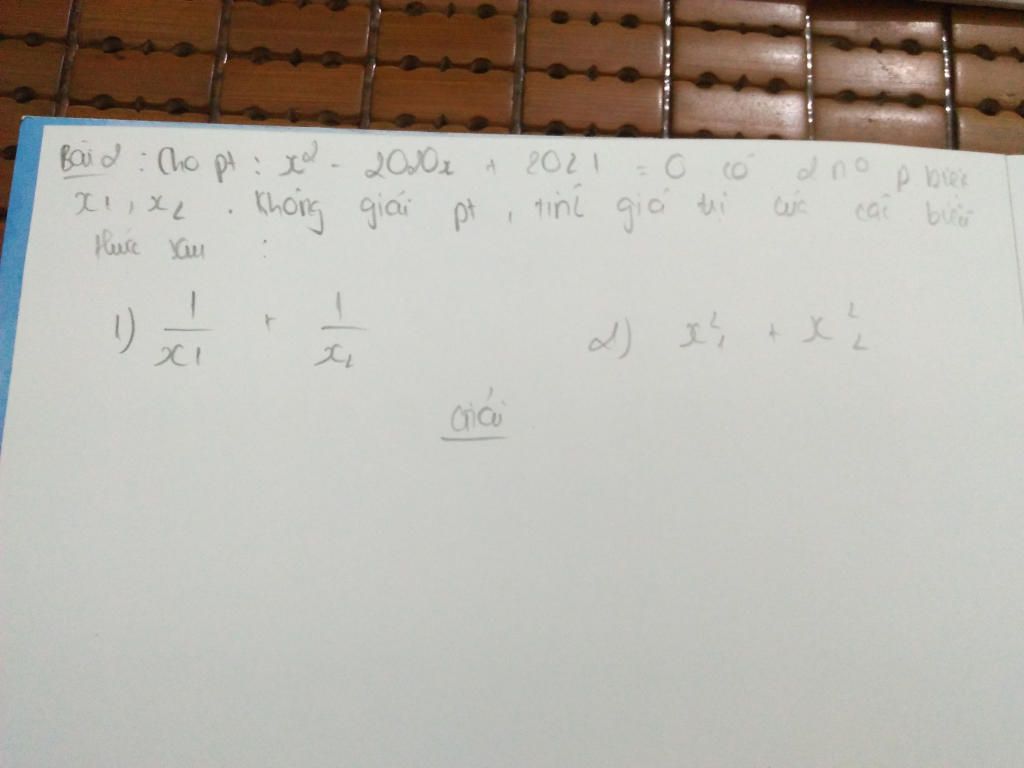 Bài 2 : Cho pt : x² - 2020x + 2021 = 0 có 2 n⁰ p. biệt
x₁, x₂ . Không giải pt , tính giá trị của các biểu
thức sau :
1) 1/x₁ + 1/x₂ 2) x₁² + x₂²
Giải